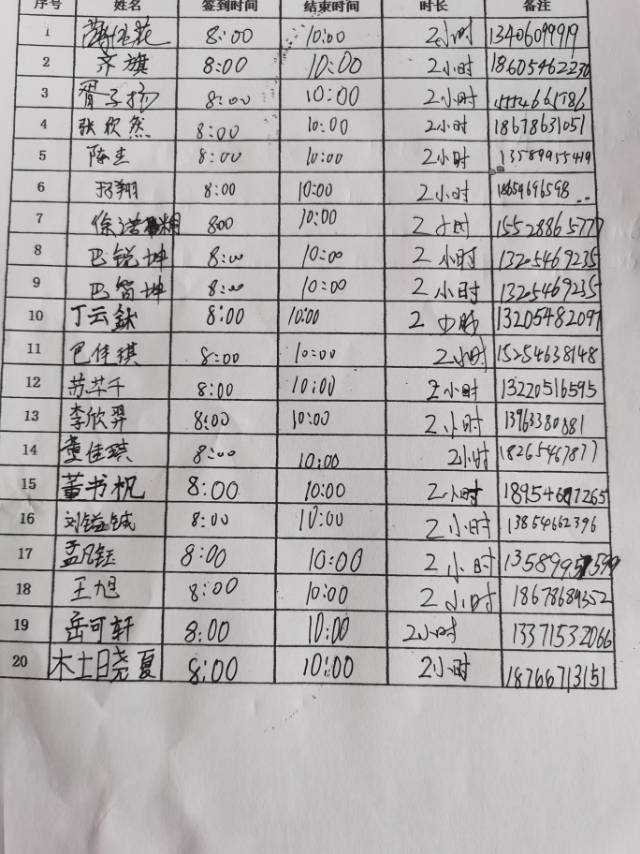 序号 姓名 签到时间 结束时间 时长 备注
1 8:00 10:00 2小时 13406099919
2 齐旗 8:00 10:00 2小时 18605462230
3 胥子扬 8:00 10:00 2小时
4 张欣然 8:00 10:00 2小时 18678631051
5 8:00 10:00 2小时 13589955419
6 8:00 10:00 2小时 18654696598
7 徐浩 800 10:00 2小时
8 巴锐坤 8:00 10:00 2小时 13205469235
9 巴简坤 8:00 10:00 2小时 13205469235
10 丁云 8:00 10:00 2小时 13205482097
11 巴佳琪 8:00 10:00 2小时 15254638148
12 苏芊千 8:00 10:00 2小时 13220516595
13 李欣羿 8:00 10:00 2小时 13963380881
14 董佳琪 8:00 10:00 2小时 18265467877
15 董书祝 8:00 10:00 2小时
16 刘镒铖 8:00 10:00 2小时 13854662396
17 孟凡钰 8:00 10:00 2小时
18 王旭 8:00 10:00 2小时 18678689352
19 岳可轩 8:00 10:00 2小时 13371532066
20 木土日晓夏 8:00 10:00 2小时 18766713151